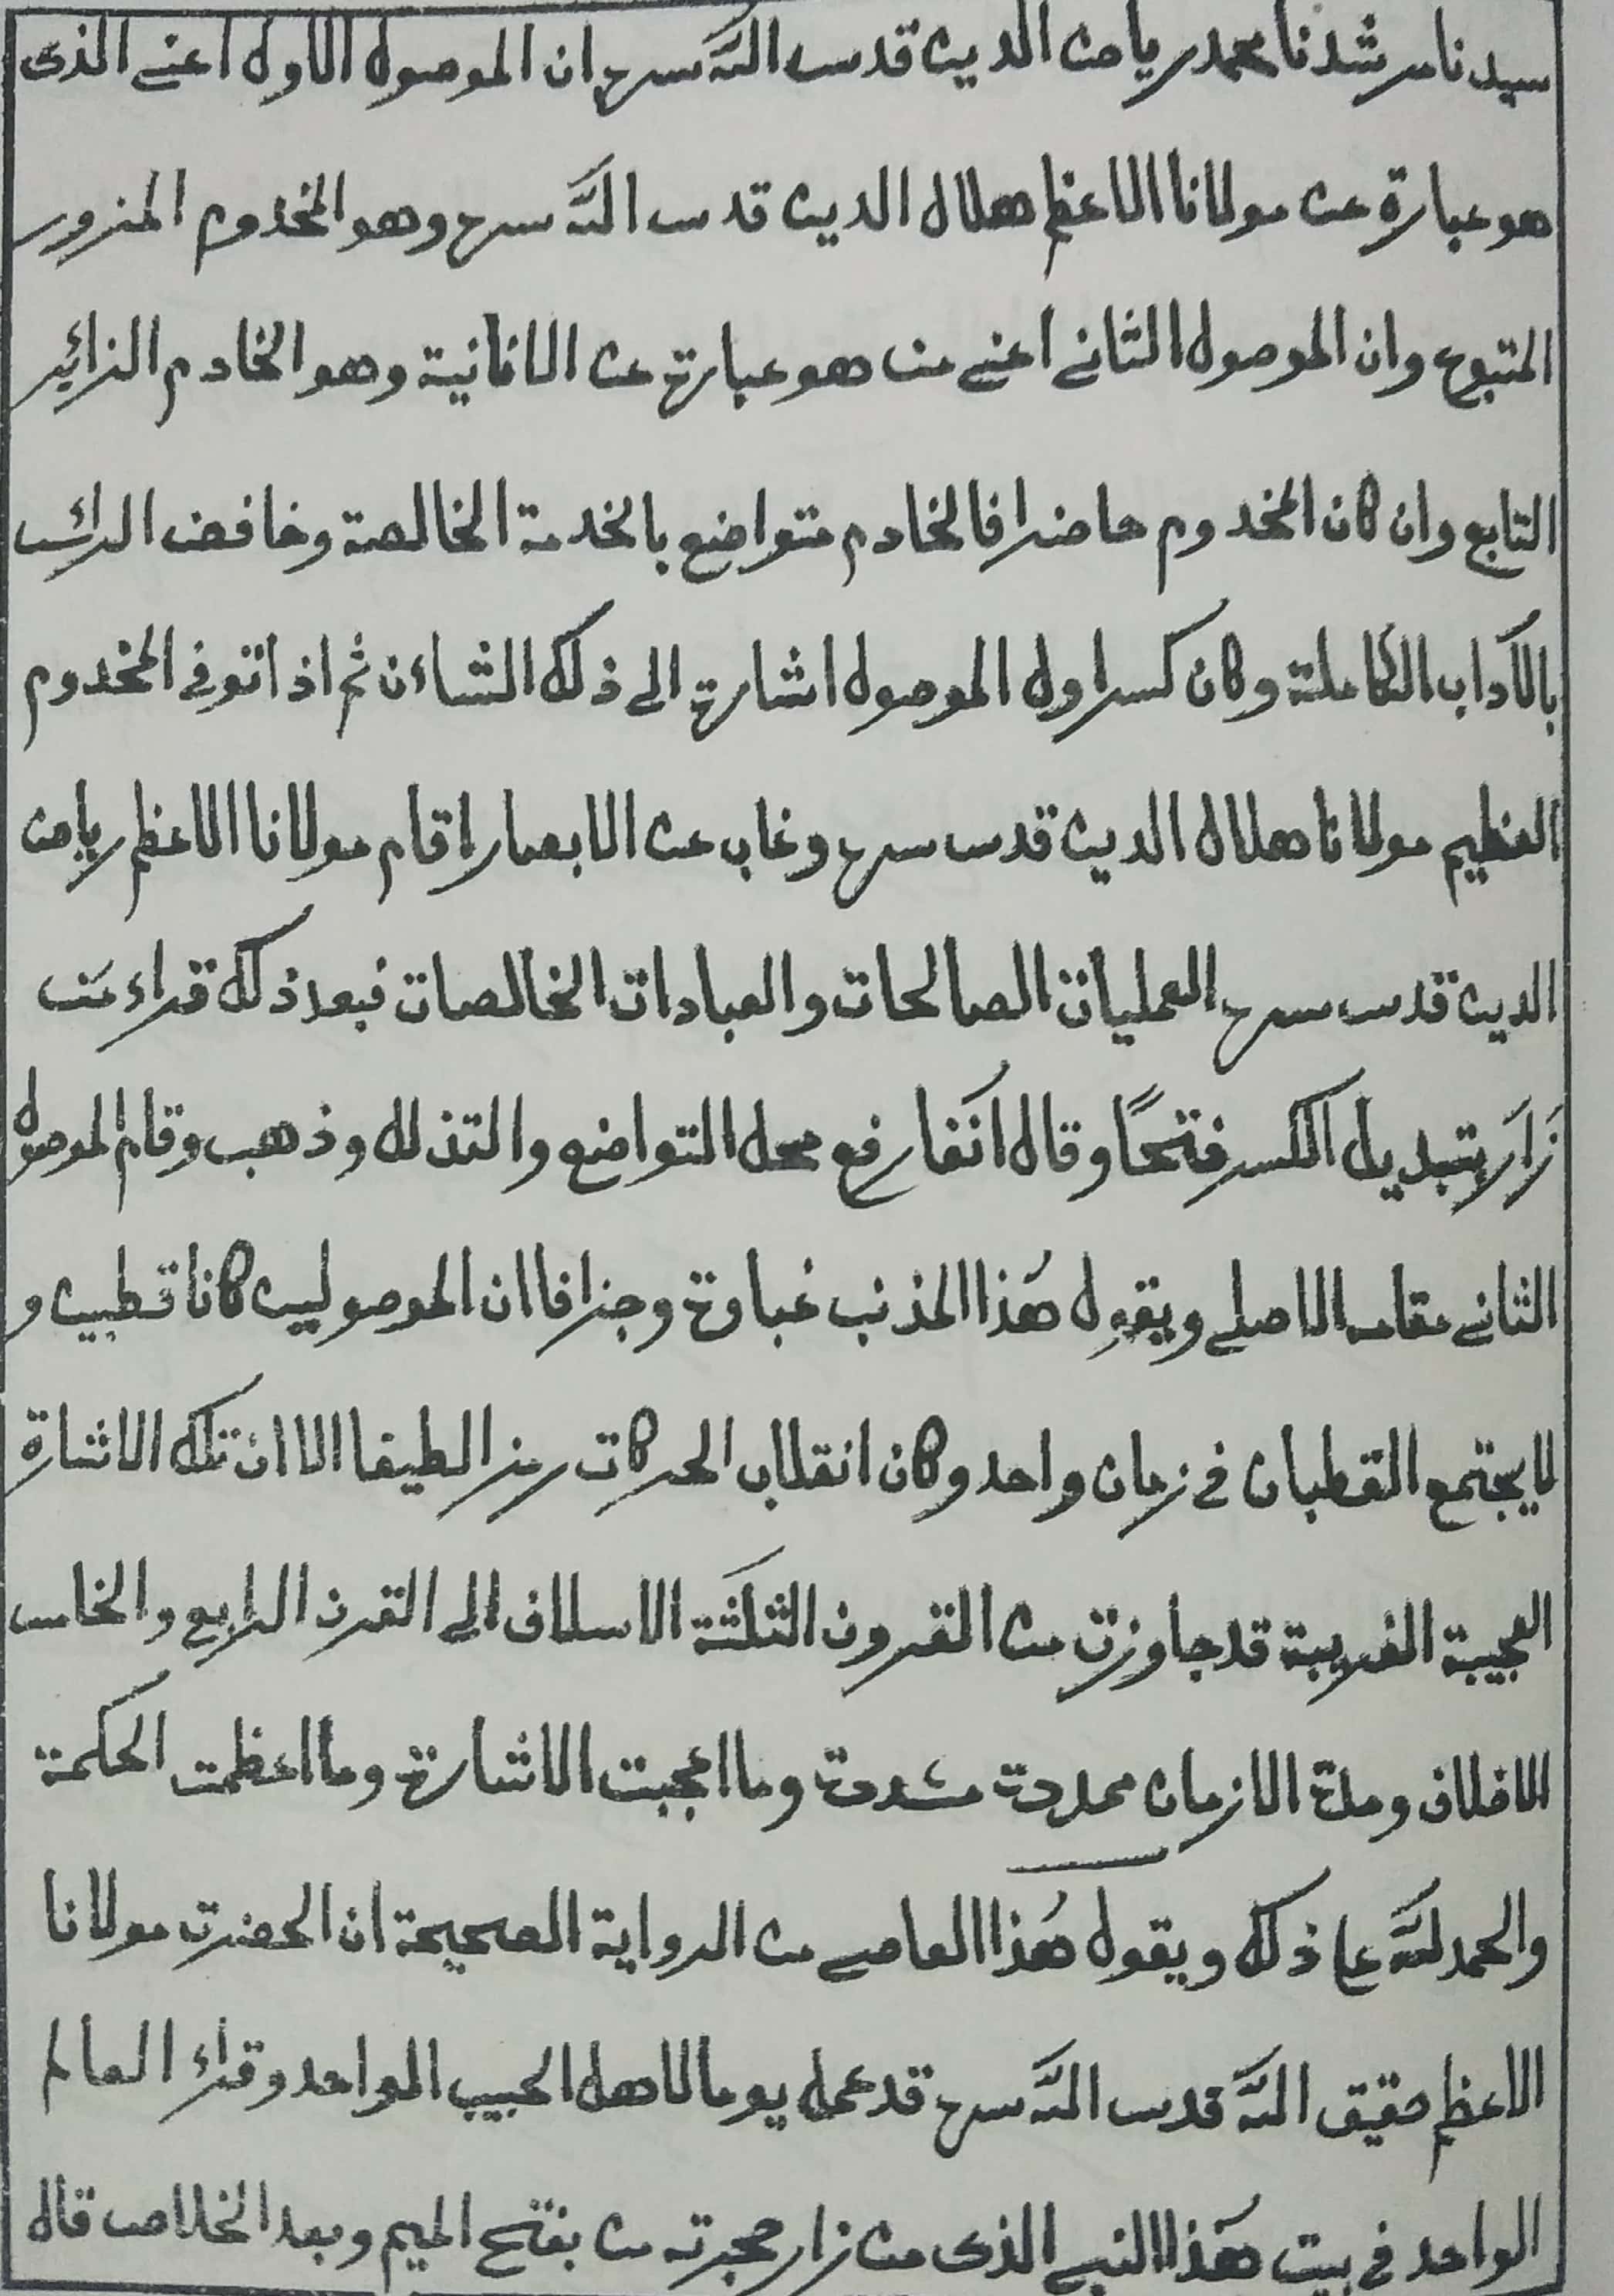 سيدنا مرشدنا محمد رياض الدين قدس اللّه سره ان الموصول الاول اعنى الذى
هو عبارة عن مولانا الاعظم هلال الدين قدس اللّه سره وهو المخدوم المزور
المتبوع وان الموصول الثانى اعنى من هو عبارة عن الانانية وهو الخادم الزائر
التابع وان كان المخدوم حاضرا فالخادم متواضع بالخدمة الخالصة وخافض الرائس
بالآداب الكاملة وكان كسر اول الموصول اشارة الى ذلك الشاءن ثم اذا توفى المخدوم
العظيم مولانا هلال الدين قدس سره وغاب عن الابصار اقام مولانا الاعظم رياض
الدين قدس سره العمليات الصالحات والعبادات الخالصات فبعد ذلك قراء مَن
زَارَ بتبديل الكسر فتحًا وقال انَفا رفع محل التواضع والتذلل وذهب وقام الموصول
الثانى مقامه الاصلى ويقول هٰذا المذنب غباوة وجزافا ان الموصولين كانا قطبين و
لا يجتمع القطبان فى زمان واحد وكان انقلاب الحركات رمزا لطيفا الا ان تلك الاشارة
العجيبة الغريبة قد جاوزت من القرون الثلثة الاسلاف الى القرن الرابع والخامس
الاخلاف ومدة الازمان ممدودة مشددة وما اعجبت الاشارة وما اعظمت الحكمة
والحمد للّه على ذلك ويقول هٰذا العاصى من الرواية الصحيحة ان الحضرت مولانا
الاعظم حقيق اللّه قدس اللّه سره قد عمل يوما لاهل الحبيب الواحد وقراء العالم
الواحد فى بيت هٰذا النبى الذى من زار حجرته من بفتح الميم وبعد الخلاص قال